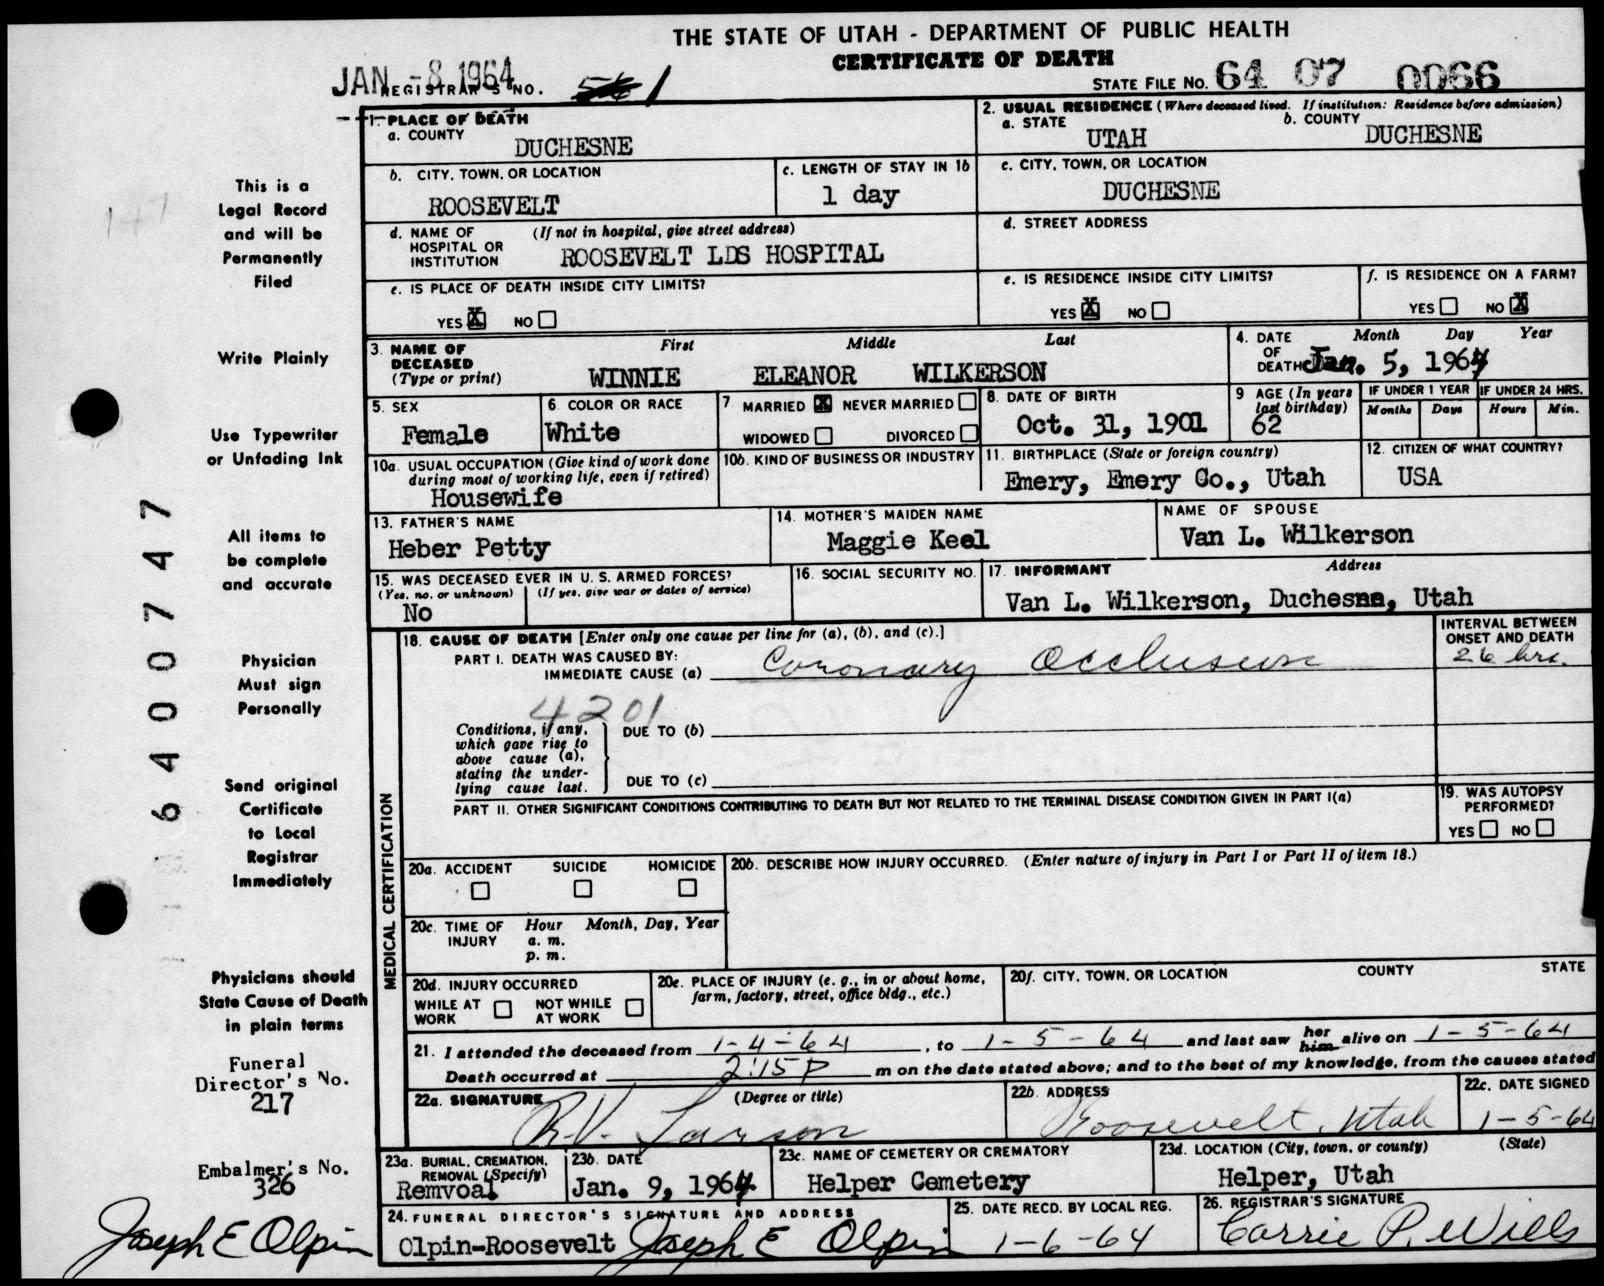 THE STATE OF UTAH - DEPARTMENT OF PUBLIC HEALTH
CERTIFICATE OF DEATH
JAN -8 1964
REGISTRAR'S NO. 1
STATE FILE NO. 64 07 0066
1. PLACE OF DEATH
a. COUNTY
DUCHESNE
2. USUAL RESIDENCE (Where deceased lived. If institution: Residence before admission)
a. STATE UTAH b. COUNTY DUCHESNE
b. CITY, TOWN, OR LOCATION
ROOSEVELT
c. LENGTH OF STAY IN 1b
1 day
c. CITY, TOWN, OR LOCATION
DUCHESNE
d. NAME OF HOSPITAL OR INSTITUTION (If not in hospital, give street address)
ROOSEVELT LDS HOSPITAL
d. STREET ADDRESS
e. IS PLACE OF DEATH INSIDE CITY LIMITS?
YES X NO
e. IS RESIDENCE INSIDE CITY LIMITS?
YES X NO
f. IS RESIDENCE ON A FARM?
YES NO X
3. NAME OF DECEASED (Type or print)
First Middle Last
WINNIE ELEANOR WILKERSON
4. DATE OF DEATH Month Day Year
Jan. 5, 1964
5. SEX
Female
6 COLOR OR RACE
White
7 MARRIED X NEVER MARRIED
WIDOWED DIVORCED
8. DATE OF BIRTH
Oct. 31, 1901
9 AGE (In years last birthday)
62
IF UNDER 1 YEAR
Months Days
IF UNDER 24 HRS.
Hours Min.
10a. USUAL OCCUPATION (Give kind of work done during most of working life, even if retired)
Housewife
10b. KIND OF BUSINESS OR INDUSTRY
11. BIRTHPLACE (State or foreign country)
Emery, Emery Co., Utah
12. CITIZEN OF WHAT COUNTRY?
USA
13. FATHER'S NAME
Heber Petty
14. MOTHER'S MAIDEN NAME
Maggie Keel
NAME OF SPOUSE
Van L. Wilkerson
15. WAS DECEASED EVER IN U. S. ARMED FORCES?
(Yes, no, or unknown) (If yes, give war or dates of service)
No
16. SOCIAL SECURITY NO.
17. INFORMANT Address
Van L. Wilkerson, Duchesne, Utah
18. CAUSE OF DEATH [Enter only one cause per line for (a), (b), and (c).]
PART I. DEATH WAS CAUSED BY:
IMMEDIATE CAUSE (a) Coronary Occlusion
INTERVAL BETWEEN ONSET AND DEATH
26 hrs.
4201
Conditions, if any, which gave rise to above cause (a), stating the underlying cause last.
DUE TO (b)
DUE TO (c)
PART II. OTHER SIGNIFICANT CONDITIONS CONTRIBUTING TO DEATH BUT NOT RELATED TO THE TERMINAL DISEASE CONDITION GIVEN IN PART I(a)
19. WAS AUTOPSY PERFORMED?
YES NO
MEDICAL CERTIFICATION
20a. ACCIDENT SUICIDE HOMICIDE
20b. DESCRIBE HOW INJURY OCCURRED. (Enter nature of injury in Part I or Part II of item 18.)
20c. TIME OF INJURY Hour Month, Day, Year
a. m.
p. m.
20d. INJURY OCCURRED
WHILE AT WORK NOT WHILE AT WORK
20e. PLACE OF INJURY (e. g., in or about home, farm, factory, street, office bldg., etc.)
20f. CITY, TOWN, OR LOCATION COUNTY STATE
21. I attended the deceased from 1-4-64, to 1-5-64 and last saw her him alive on 1-5-64
Death occurred at 2:15 P m on the date stated above; and to the best of my knowledge, from the causes stated
22a. SIGNATURE (Degree or title)
R.V. Larson
22b. ADDRESS
Roosevelt, Utah
22c. DATE SIGNED
1-5-64
23a. BURIAL, CREMATION, REMOVAL (Specify)
Remvoal
23b. DATE
Jan. 9, 1964
23c. NAME OF CEMETERY OR CREMATORY
Helper Cemetery
23d. LOCATION (City, town, or county) (State)
Helper, Utah
24. FUNERAL DIRECTOR'S SIGNATURE AND ADDRESS
Olpin-Roosevelt Joseph E Olpin
25. DATE RECD. BY LOCAL REG.
1-6-64
26. REGISTRAR'S SIGNATURE
Carrie P. Wills
147
This is a
Legal Record
and will be
Permanently
Filed
Write Plainly
Use Typewriter
or Unfading Ink
All items to
be complete
and accurate
Physician
Must sign
Personally
Send original
Certificate
to Local
Registrar
Immediately
Physicians should
State Cause of Death
in plain terms
Funeral
Director's No.
217
Embalmer's No.
326
Joseph E Olpin
6400747